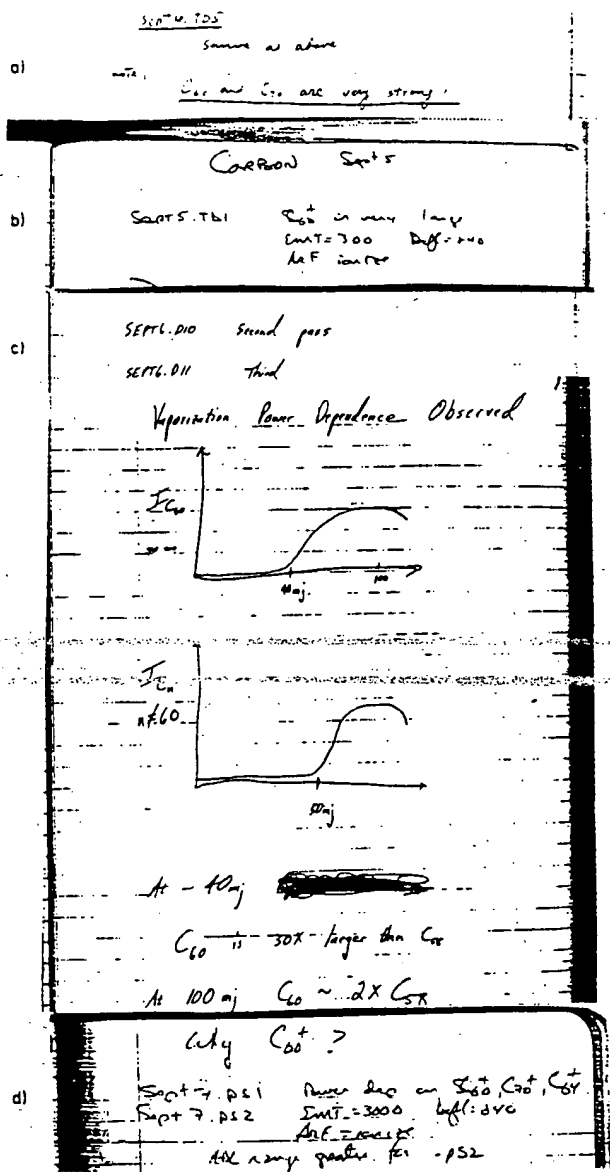 a)
Sept 4. TD5
Same as above
note:
C60 and C70 are very strong!
CARBON Sept 5
b)
SEPT5.TD1 C60+ is very large
EMT=300 Defl=240
ArF ionize
c)
SEPT6.D10 Second pass
SEPT6.D11 Third
Vaporization Power Dependence Observed
I C60
40mj. 100
I Cn
n≠60
50mj
At ~40mj
C60 is 30X larger than C58
At 100mj C60 ~ 2X C58
Why C60+ ?
d)
Sept 7. PS1 Power dep on C60+, C70+, C64+
Sept 7. PS2 EMT=3000 Defl:240
ArF = ionize
range greater for .PS2